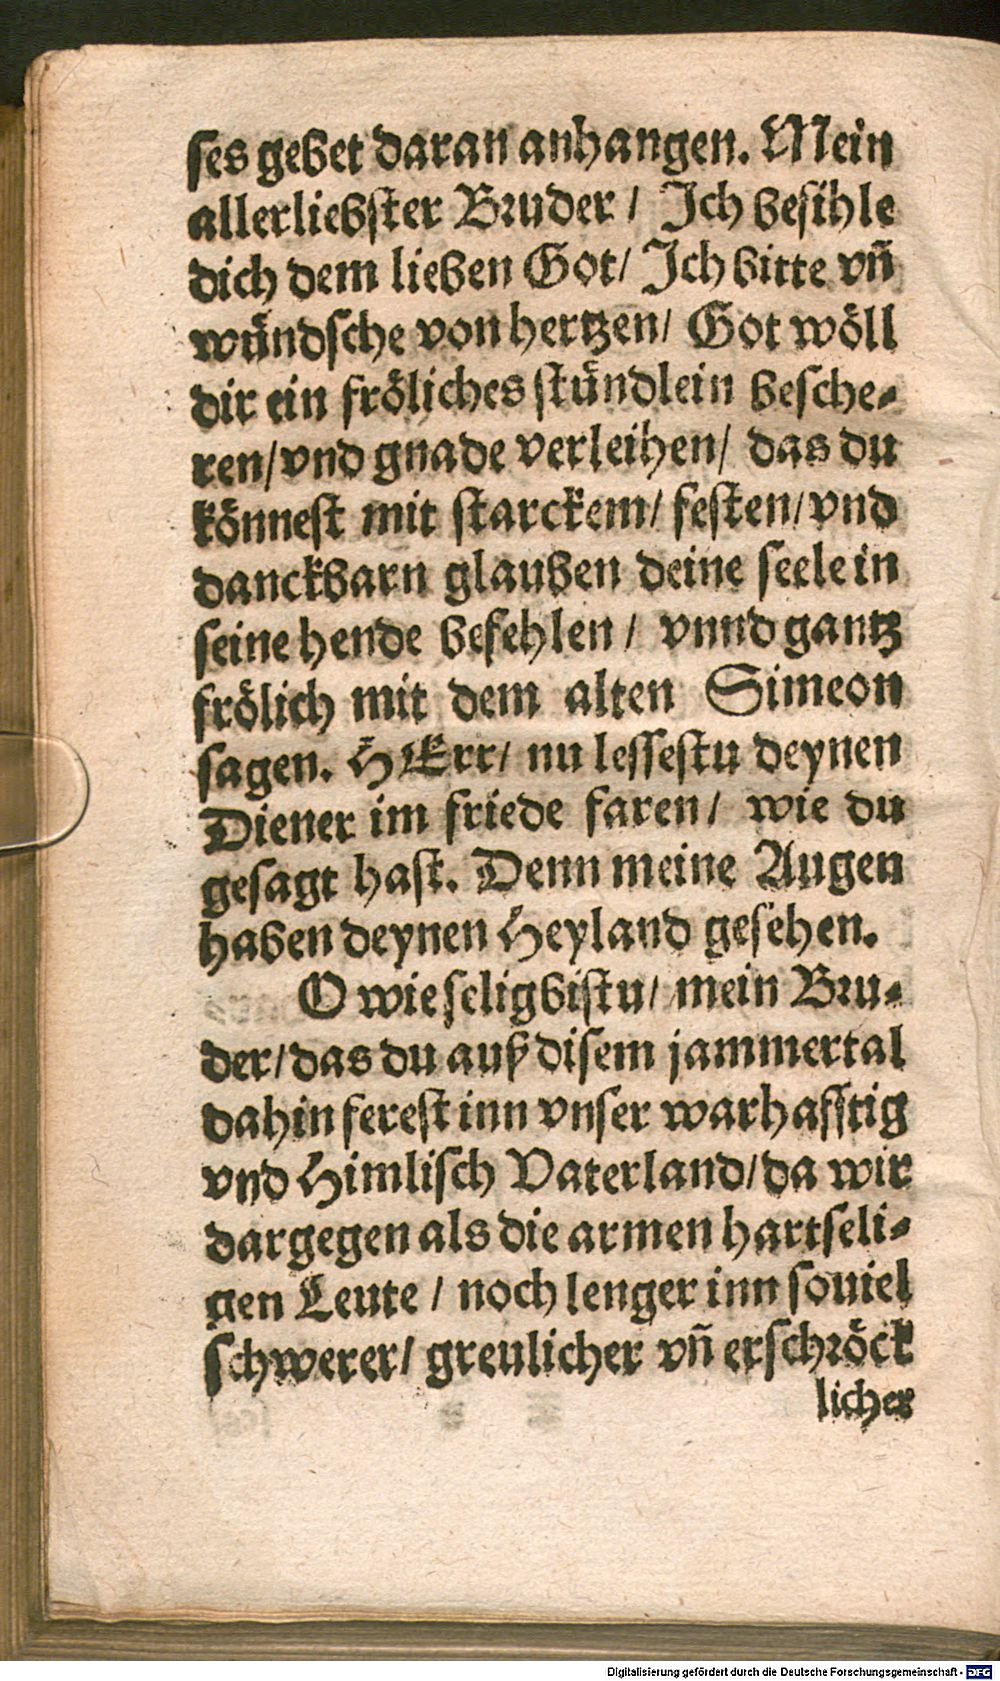 ses gebet daran anhangen. Mein
allerliebster Bruder / Ich befihle
dich dem lieben Got / Ich bitte vñ
wündsche von hertzen / Got wöll
dir ein fröliches stündlein besche⸗
ren / vnd gnade verleihen / das du
könnest mit starckem / festen / vnd
danckbarn glauben deine seele in
seine hende befehlen / vnnd gantz
frölich mit dem alten Simeon
sagen. HErr / nu lessestu deynen
Diener im friede faren / wie du
gesagt hast. Denn meine Augen
haben deynen Heyland gesehen.
O wie selig bistu / mein Bru⸗
der / das du auß disem jammertal
dahin ferest inn vnser warhafftig
vnd Himlisch Vaterland / da wir
dargegen als die armen hartseli⸗
gen Leute / noch lenger inn souiel
schwerer / greulicher vñ erschröck
licher
Digitalisierung gefördert durch die Deutsche Forschungsgemeinschaft - DFG